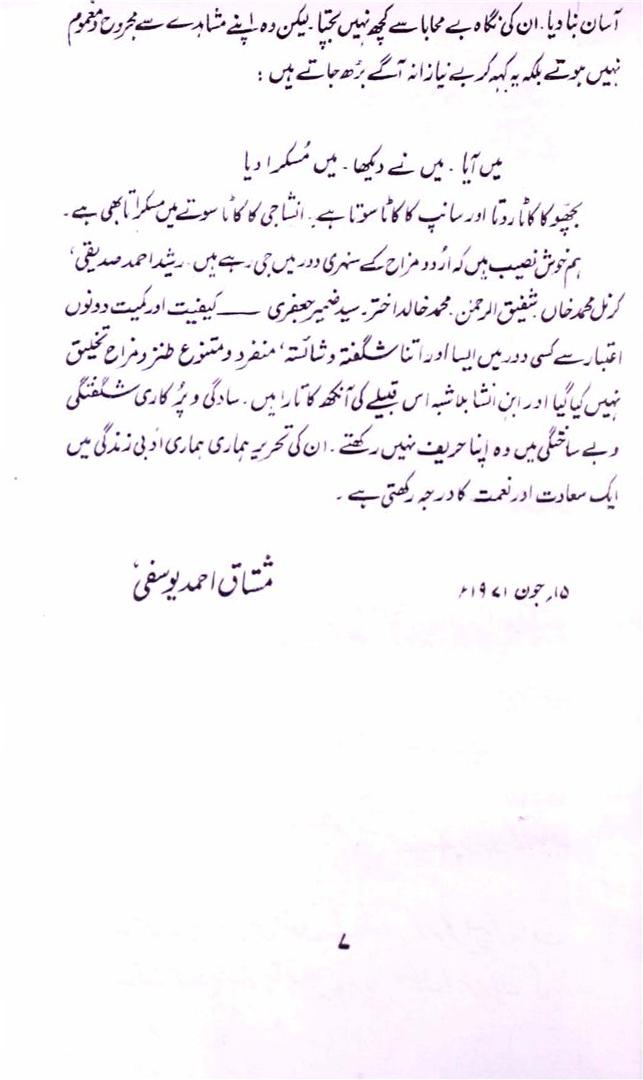 آسان بنا دیا۔ ان کی نگاہ بے محابا سے کچھ نہیں بچتا۔ لیکن وہ اپنے مشاہدے سے مجروح و مغموم
نہیں ہوتے بلکہ یہ کہہ کر بے نیازانہ آگے بڑھ جاتے ہیں :
میں آیا۔ میں نے دیکھا۔ میں مُسکرا دیا
بچھّو کا کاٹا روتا اور سانپ کا کاٹا سوتا ہے۔ انشا جی کا کاٹا سوتے میں مسکراتا بھی ہے۔
ہم خوش نصیب ہیں کہ اُردو مزاح کے سنہری دور میں جی رہے ہیں۔ رشید احمد صدیقی ‘
کرنل محمد خاں۔ شفیق الرحمٰن۔ محمد خالد اختر۔ سید ضمیر جعفری ــــــ کیفیت اور کمیت دونوں
اعتبار سے کسی دور میں ایسا اور اتنا شگفتہ و شائستہ ‘ منفرد و متنوع طنز و مزاح تخلیق
نہیں کیا گیا اور ابنِ انشا بلاشبہ اس قبیلے کی آنکھ کا تارا ہیں۔ سادگی و پُرکاری شگفتگی
و بے ساختگی میں وہ اپنا حریف نہیں رکھتے۔ ان کی تحریر ہماری ہماری ادبی زندگی میں
ایک سعادت اور نعمت کا درجہ رکھتی ہے۔
۱۵؍ جون ۱۹۷۱ء
مشتاق احمد یوسفی
۷